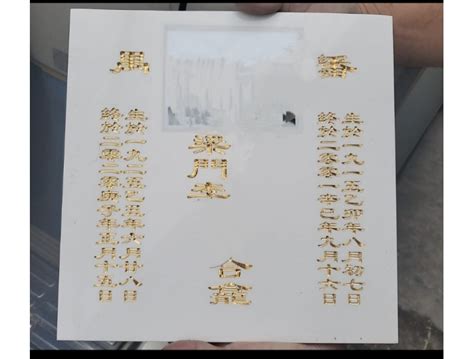 生於一九一五乙卯年八月初七日
終於二零零一辛巳年九月十六日
梁門
合
生於一九二五乙丑年六月廿八日
終於二零二零庚子年月十五日